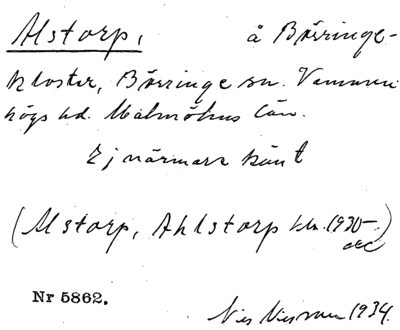 Alstorp, å Börringe-
kloster, Börringe sn. Vemmen
högs hd. Malmöhus län.
Ej närmare känt
(Alstorp, Ahlstorp 1930-
Nr 5862. 1934.